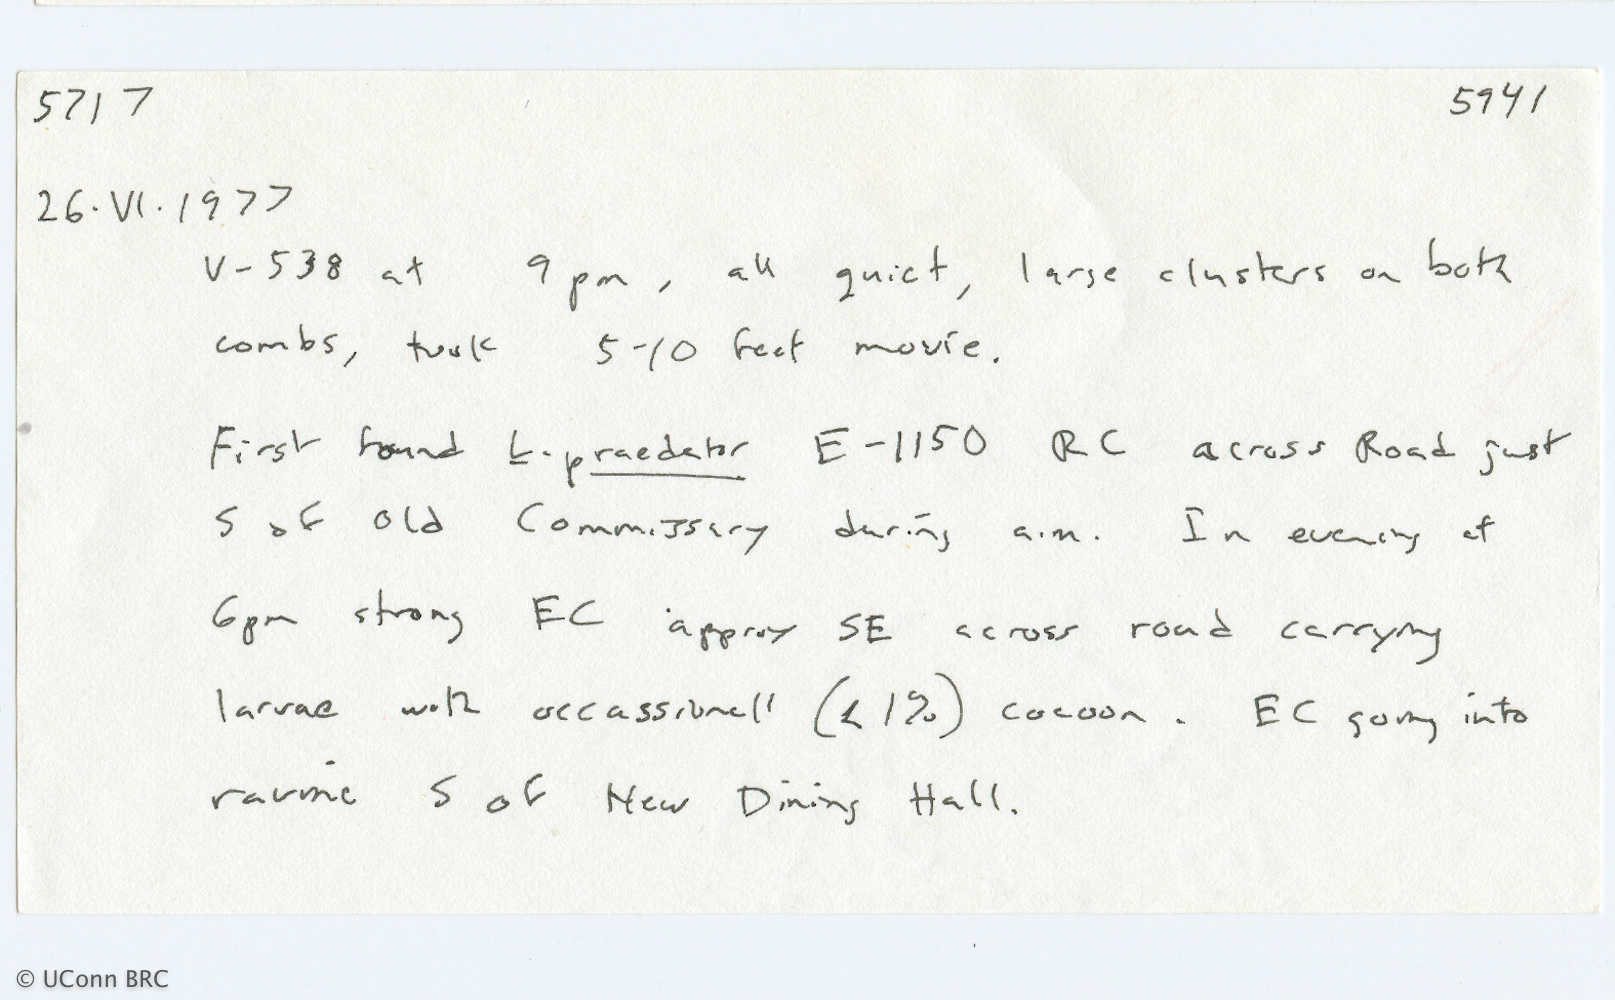 5717 5941
26.VI.1977
V-538 at 9 pm, all quiet, large clusters on both
combs, took 5-10 feet movie.
First found L. praedator E-1150 RC across Road just
S of Old Commissary during a.m. In evening at
6pm strong EC approx SE across road carrying
larvae with occassionall (<1%) cocoon. EC going into
ravine S of New Dining Hall.
© UConn BRC